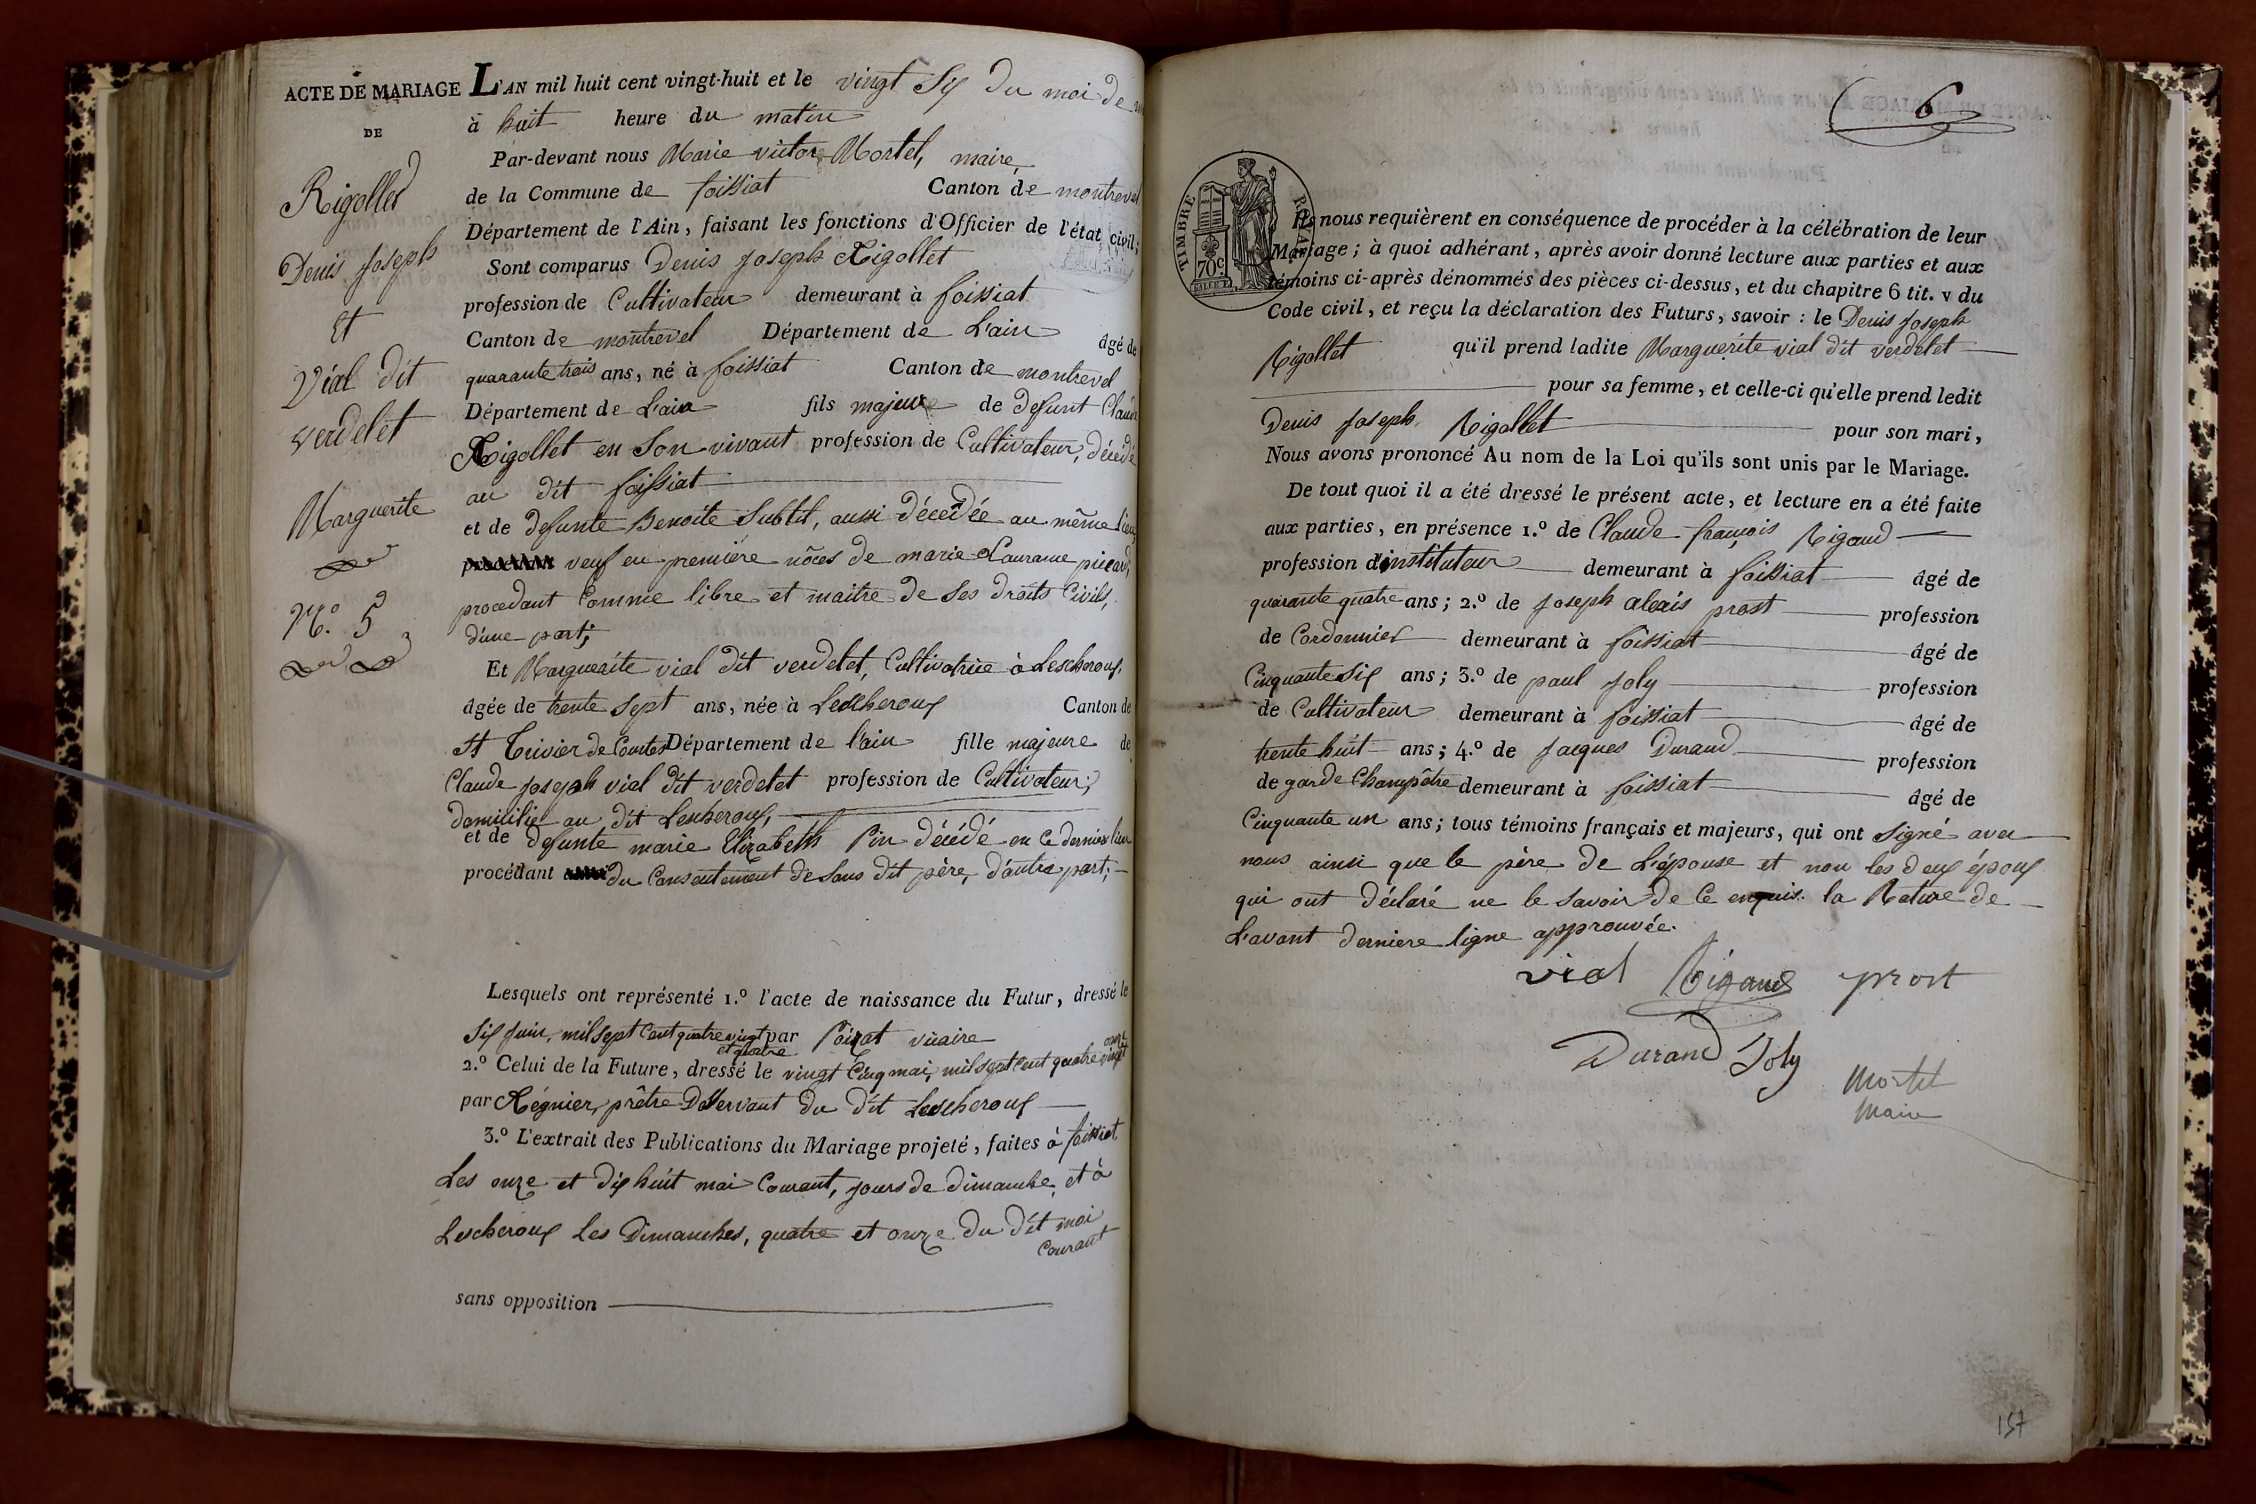 ACTE DE MARIAGE
DE
Rigollet
Denis Joseph
Et
Vial dit
verdelet
Marguerite
N.º 5
L'AN mil huit cent vingt-huit et le vingt Six du moi de
à huit heure du matin
Par-devant nous Marie victor Mortel, maire
de la Commune de foissiat Canton de montrevel
Département de l'Ain, faisant les fonctions d'Officier de l'état civil;
Sont comparus Denis Joseph Rigollet
profession de Cultivateur demeurant à foissiat
Canton de montrevel Département de L'ain âgé de
quarante trois ans, né à foissiat Canton de montrevel
Département de L'ain fils majeur de defunt Claude
Rigollet en Son vivant profession de Cultivateur, décédé
au dit foissiat
et de defunte Benoite Subtil, aussi décédée au même lieu,
veuf en première nôces de marie Laurance picard,
procedant Comme libre et maitre de Ses droits Civils,
d'une part;
Et Marguerite vial dit verdelet, Cultivatrice à Lescheroux,
âgée de trente sept ans, née à Lescheroux Canton de
St Trivier de Courtes Département de l'ain fille majeure de
Claude Joseph vial dit verdelet profession de Cultivateur,
domicilié au dit Lescheroux,
et de defunte marie Elizabeth Pin décédé en Ce dernier lieu
procédant du Consentement de Sous dit père, d'autre part;
Lesquels ont représenté 1.º l'acte de naissance du Futur, dressé le
Six Juin, mil sept Cent quatre vingt par Poizat vicaire
et quatre
2.º Celui de la Future, dressé le vingt Cinq mai, mil sept cent quatre vingt onze
par Régnier, prêtre Desservant du dit Lescheroux
3.º L'extrait des Publications du Mariage projeté, faites à foissiat
Les onze et dix huit mai Courant, jours de dimanche, et à
Lescheroux Les Dimanches, quatre et onze du dit moi
Courant
sans opposition
6
TIMBRE ROYAL
70 c
Ils nous requièrent en conséquence de procéder à la célébration de leur
Mariage; à quoi adhérant, après avoir donné lecture aux parties et aux
témoins ci-après dénommés des pièces ci-dessus, et du chapitre 6 tit. v du
Code civil, et reçu la déclaration des Futurs, savoir : le Denis Joseph
Rigollet qu'il prend ladite Marguerite vial dit verdelet
pour sa femme, et celle-ci qu'elle prend ledit
Denis Joseph Rigollet pour son mari,
Nous avons prononcé Au nom de la Loi qu'ils sont unis par le Mariage.
De tout quoi il a été dressé le présent acte, et lecture en a été faite
aux parties, en présence 1.º de Claude françois Rigaud
profession d'instituteur demeurant à foissiat âgé de
quarante quatre ans; 2.º de Joseph alexis prost profession
de Cordonnier demeurant à foissiat âgé de
Cinquante Six ans; 3.º de paul Joly profession
de Cultivateur demeurant à foissiat âgé de
trente huit ans; 4.º de Jacques Durand profession
de garde Champêtre demeurant à foissiat âgé de
Cinquante un ans; tous témoins français et majeurs, qui ont Signé avec
nous ainsi que le père de L'épouse et non les deux époux
qui ont déclaré ne le Savoir de Ce enquis. la Rature de
L'avant derniere ligne approuvée.
vial Rigaud prost
Durand Joly
Mortel
Maire
157